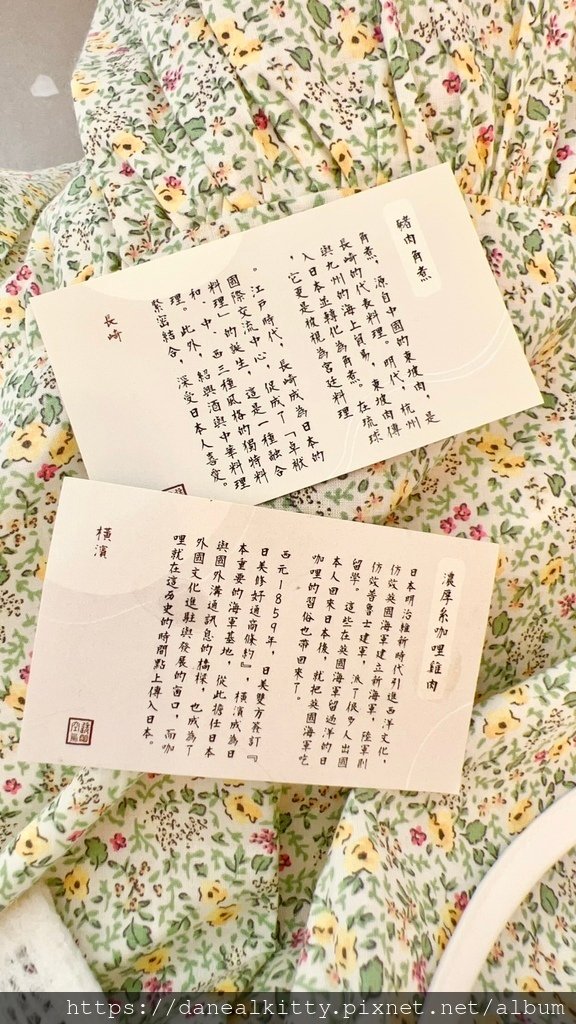 豬肉角煮
角煮，源自中國的東坡肉，是
長崎的代表料理。明代，杭州
與九州的海上貿易，東坡肉傳
入日本並轉化為角煮。在琉球
，它更是被視為宮廷料理
。江戶時代，長崎成為日本的
國際交流中心，促成了「卓袱
料理」的誕生，這是一種融合
和、中、西三種風格的獨特料
理。此外，紹興酒與中華料理
緊密結合，深受日本人喜愛。
長崎
濃厚系咖哩雞肉
日本明治維新時代引進西洋文化，
仿效英國海軍建立新海軍，陸軍則
仿效普魯士建軍，派了很多人出國
留學。這些在英國海軍留過洋的日
本人回來日本後，就把英國海軍吃
咖哩的習俗也帶回來了。
西元1859年，日美雙方簽訂『
日美修好通商條約』，橫濱成為日
本重要的海軍基地，從此擔任日本
與國外溝通訊息的橋樑，也成為了
外國文化進駐與發展的窗口，而咖
哩就在這歷史的時間點上傳入日本。
橫濱
https://danealkitty.pixnet.net/album